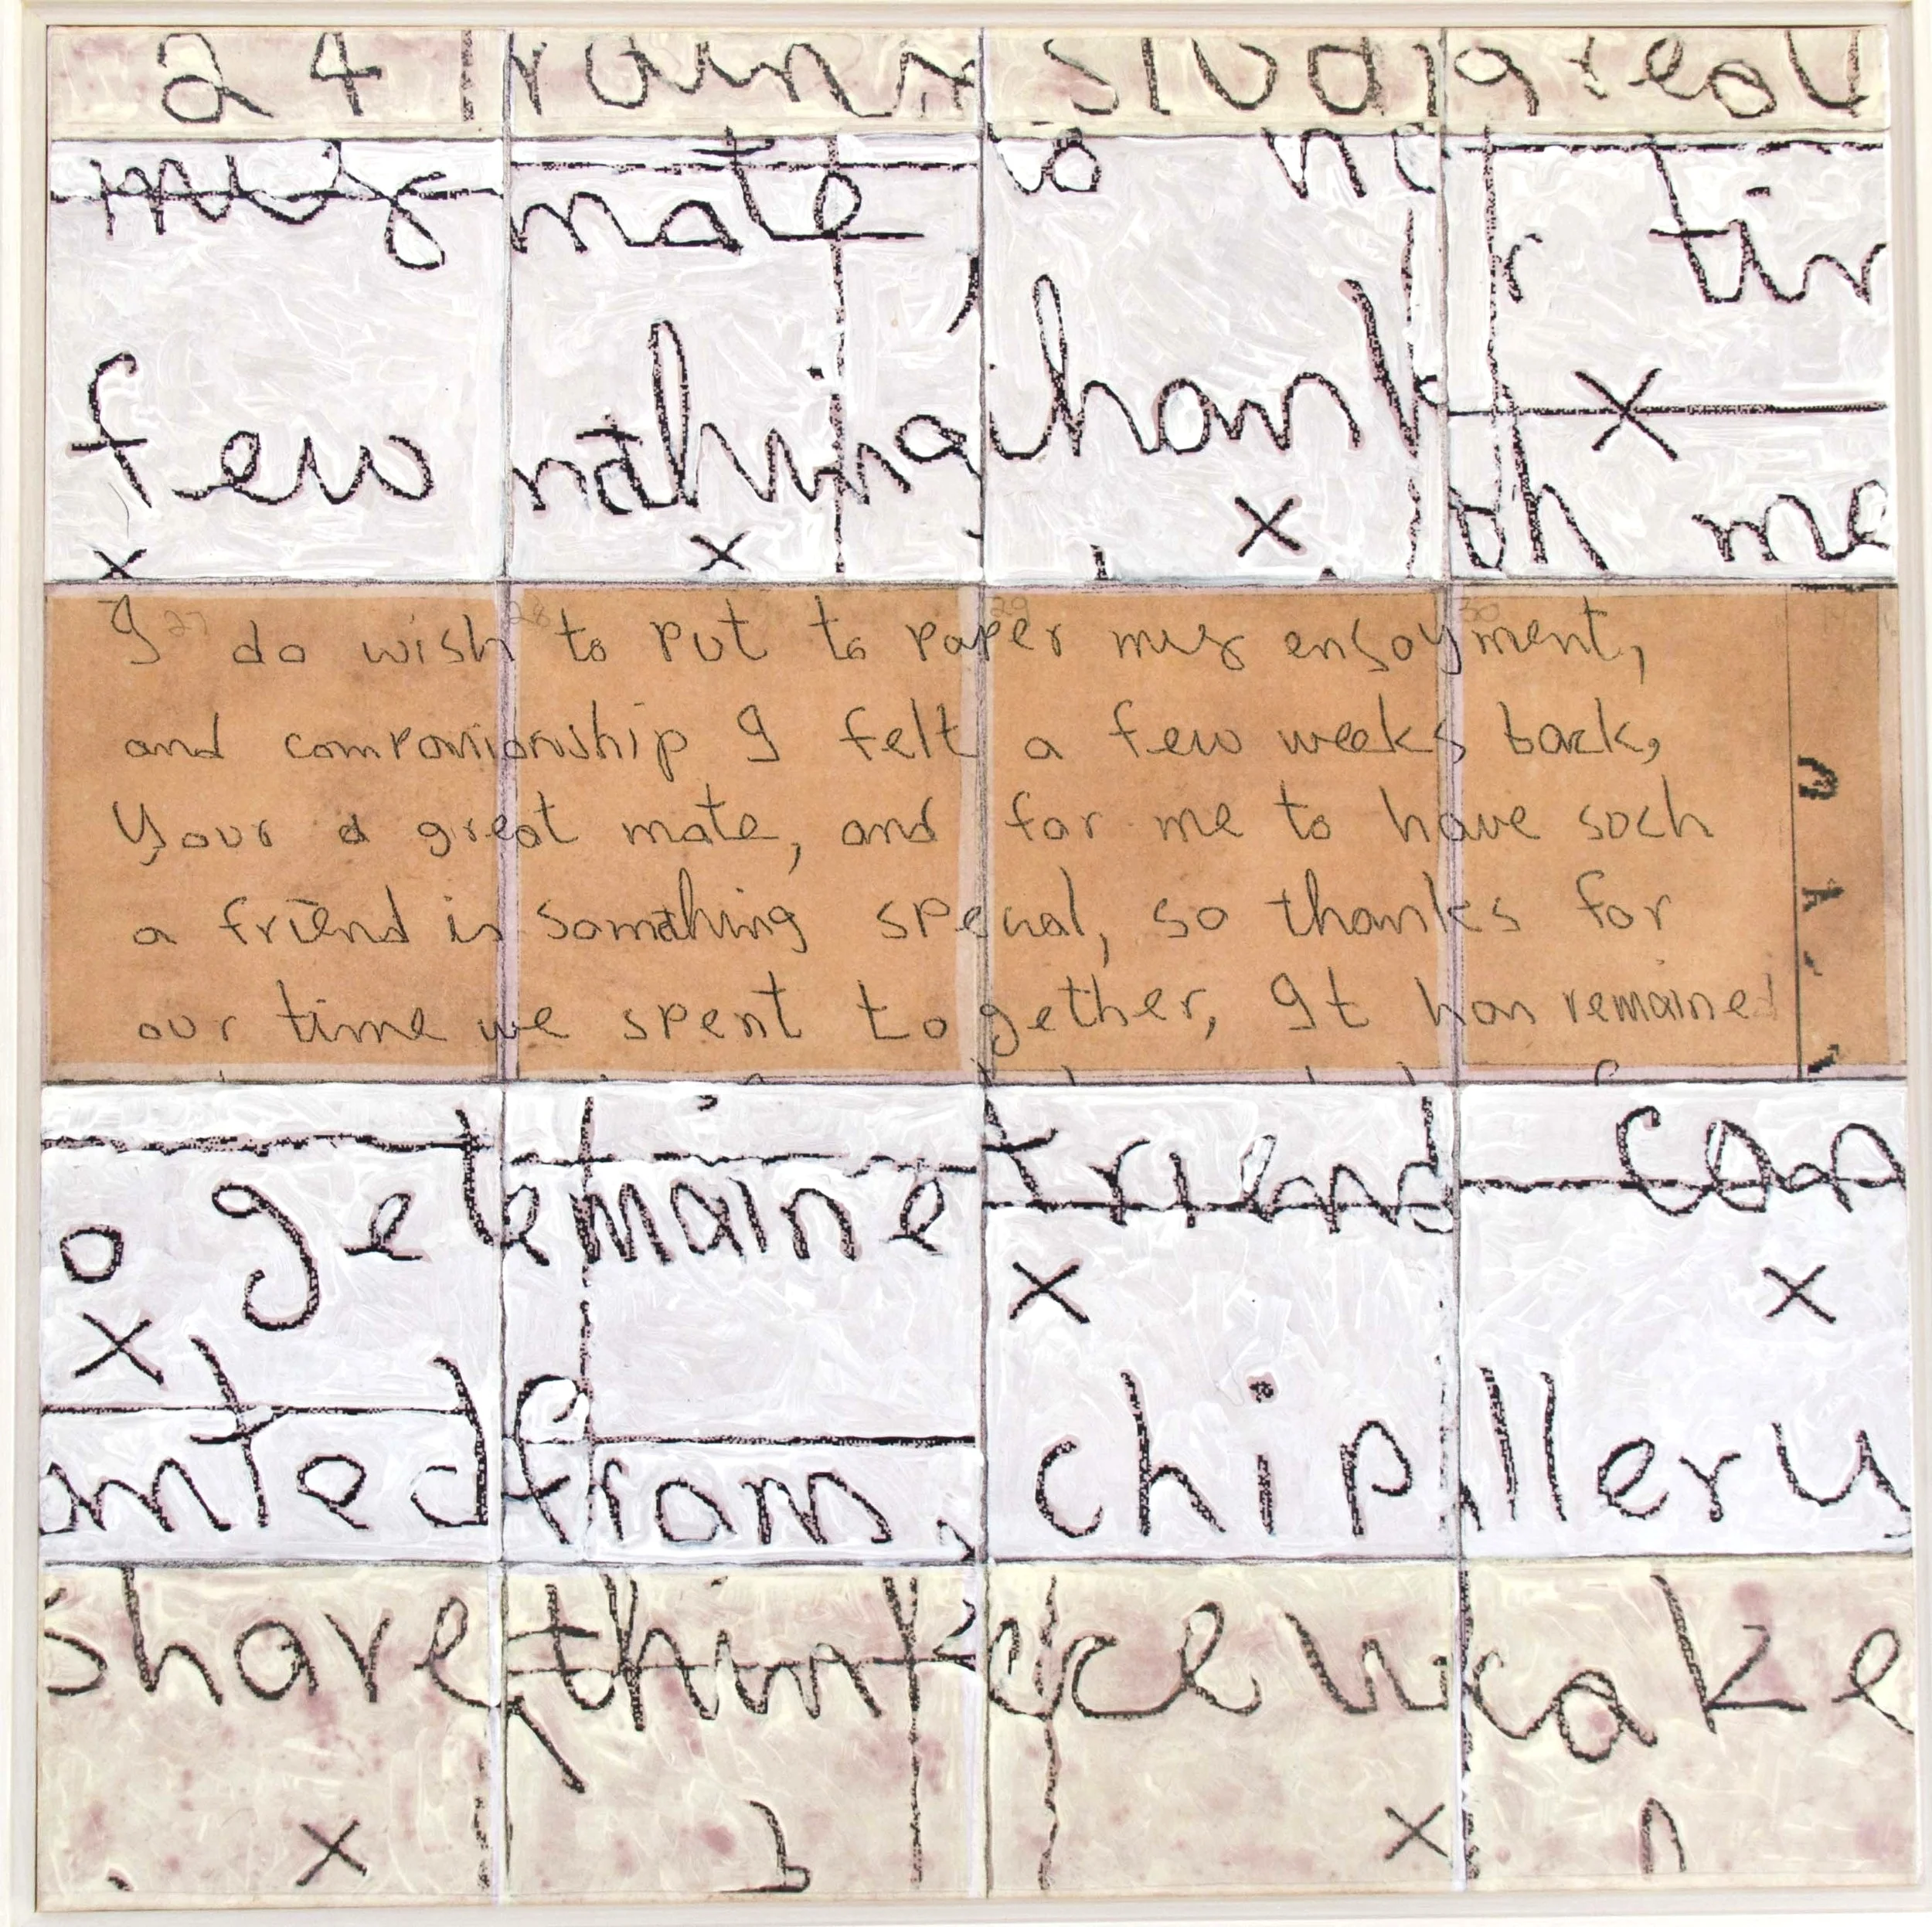 24 rain studi great
mys mate, so
r tin
few nathing hank
th me
27 28 29 30
I do wish to put to paper mys ensoyment,
and companionship I felt a few weeks back,
Your a great mate, and for me to have such
a friend is somathing special, so thanks for
our time we spent together, It has remained
o get emaine friend can
anted from, chip llery
share think ece w cake